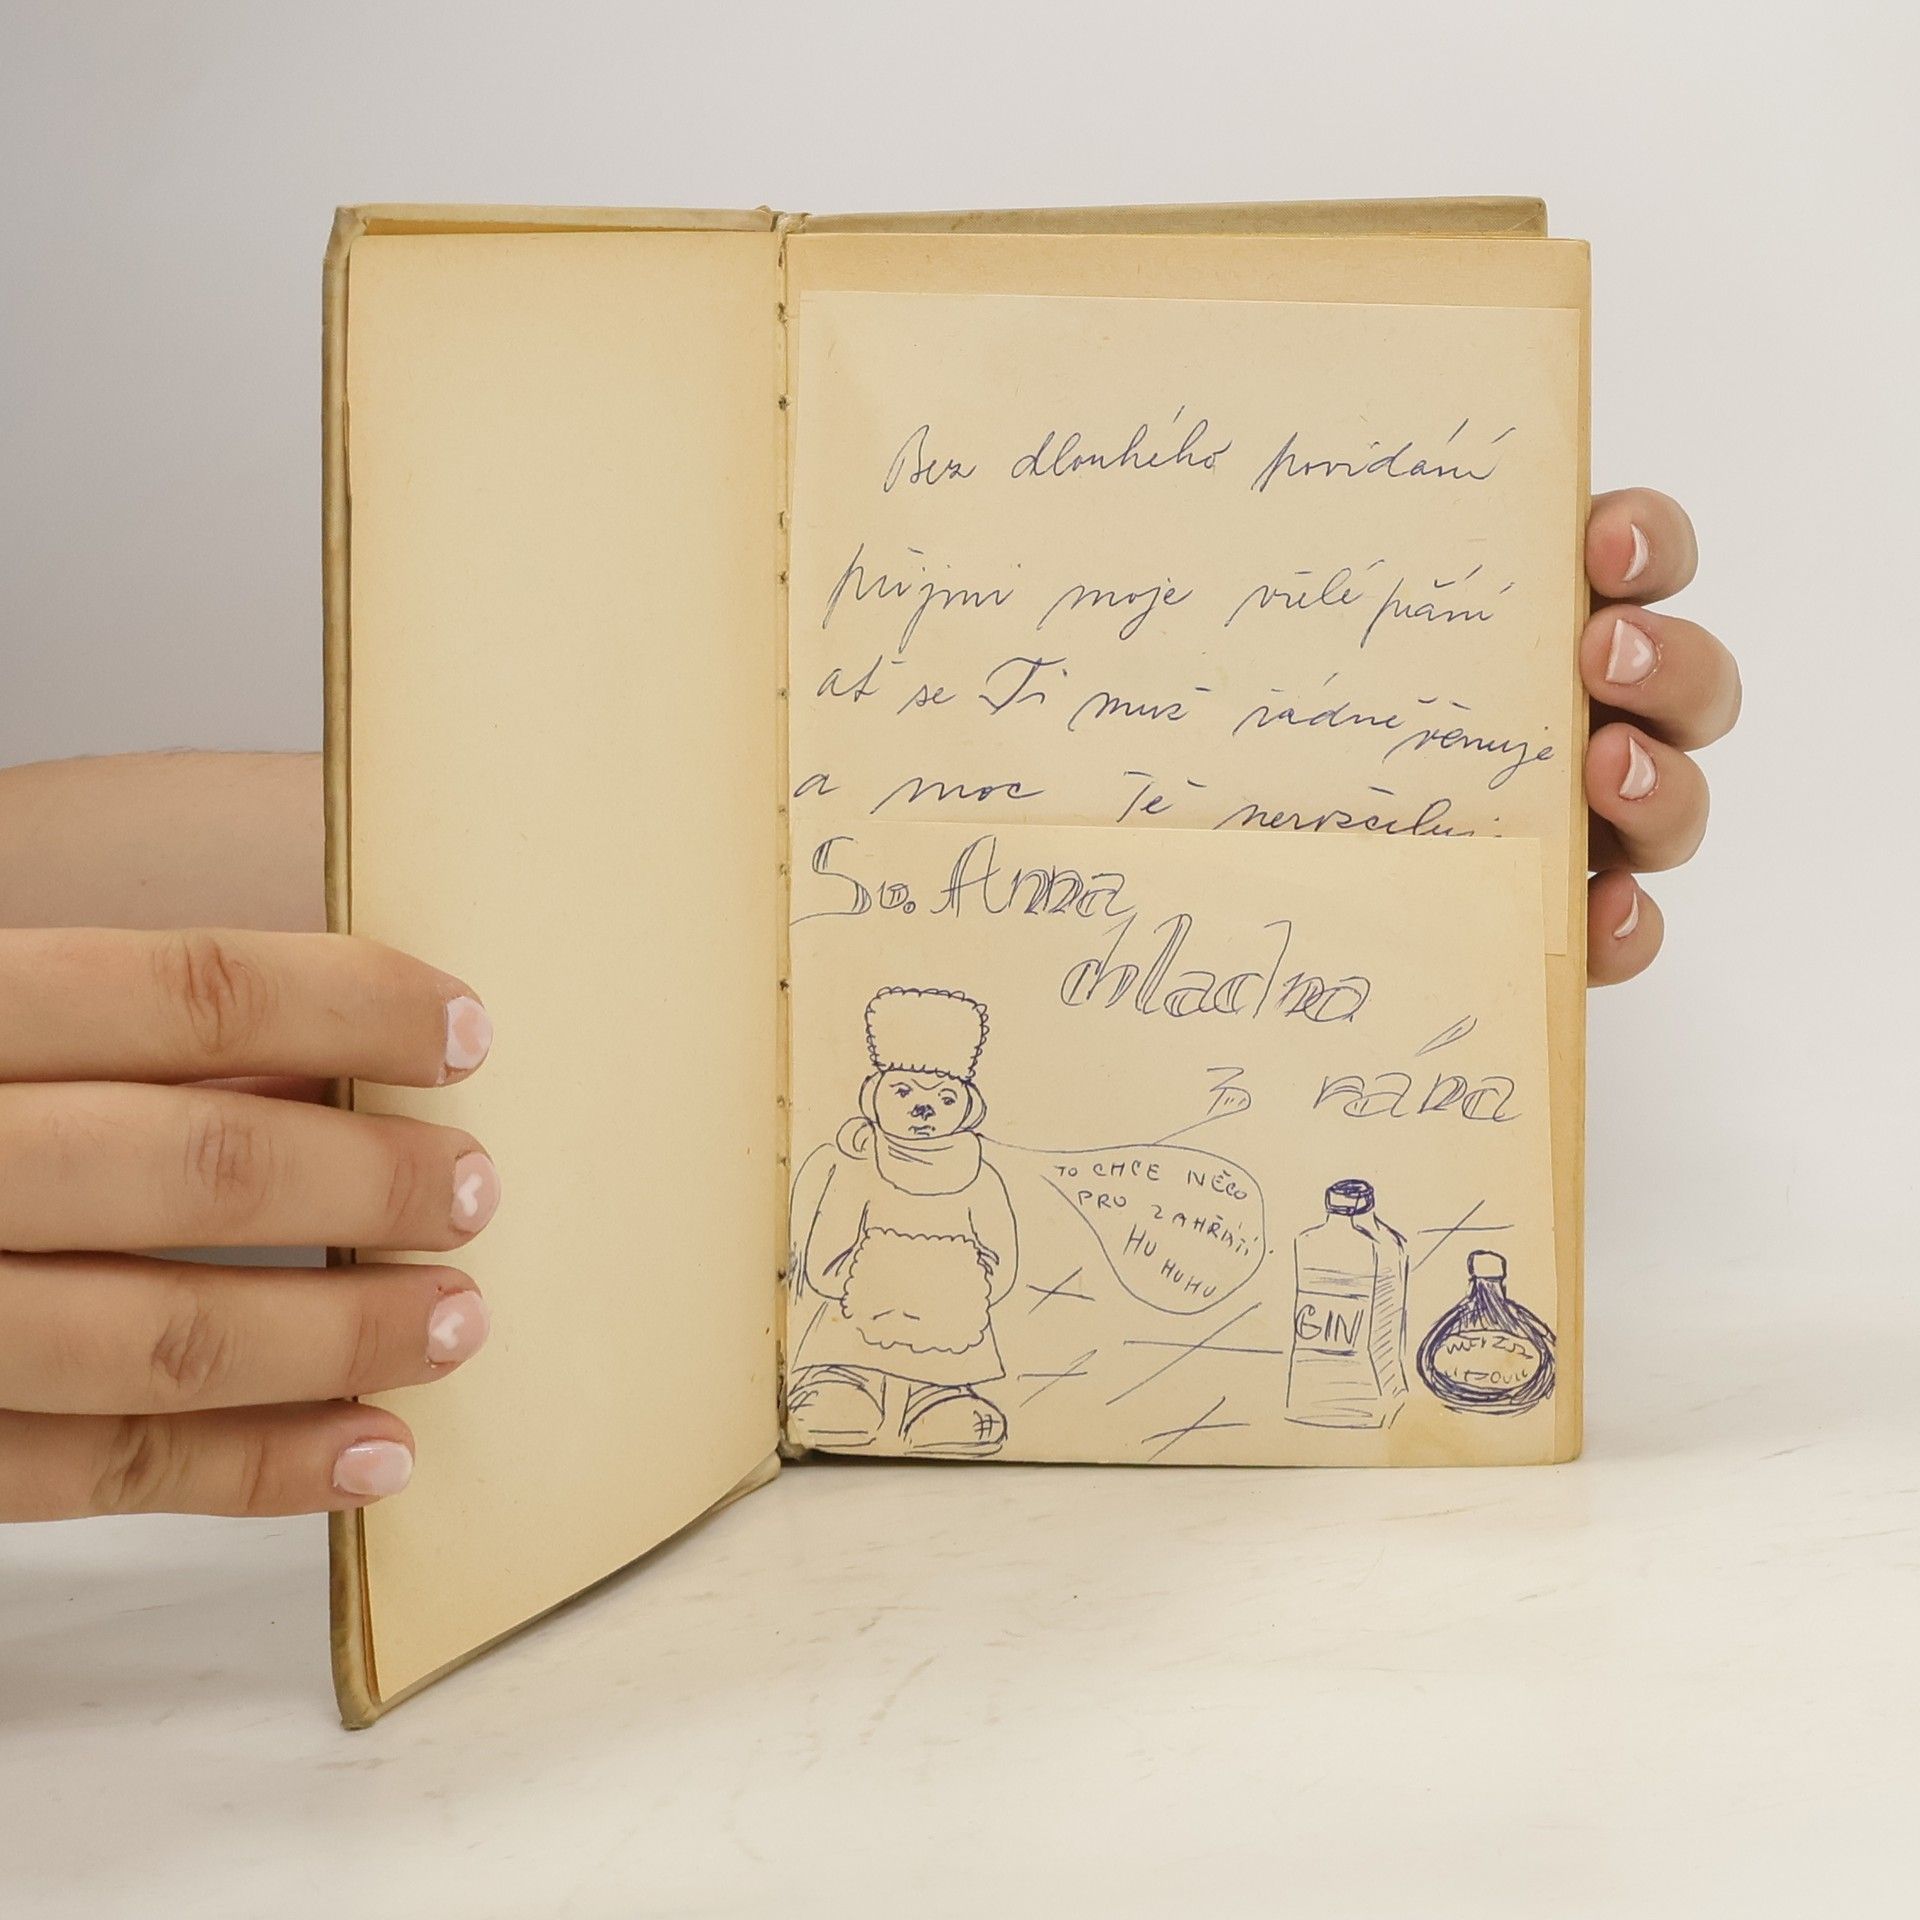 Bez dlouhého povídání
přijmi moje vřelé přání
ať se Ti muž řádně věnuje
a moc Tě nerozčiluje
Sv. Anna
chladna
z rána
TO CHCE NĚCO
PRO ZAHŘÁTÍ
HU
HUHU
GIN